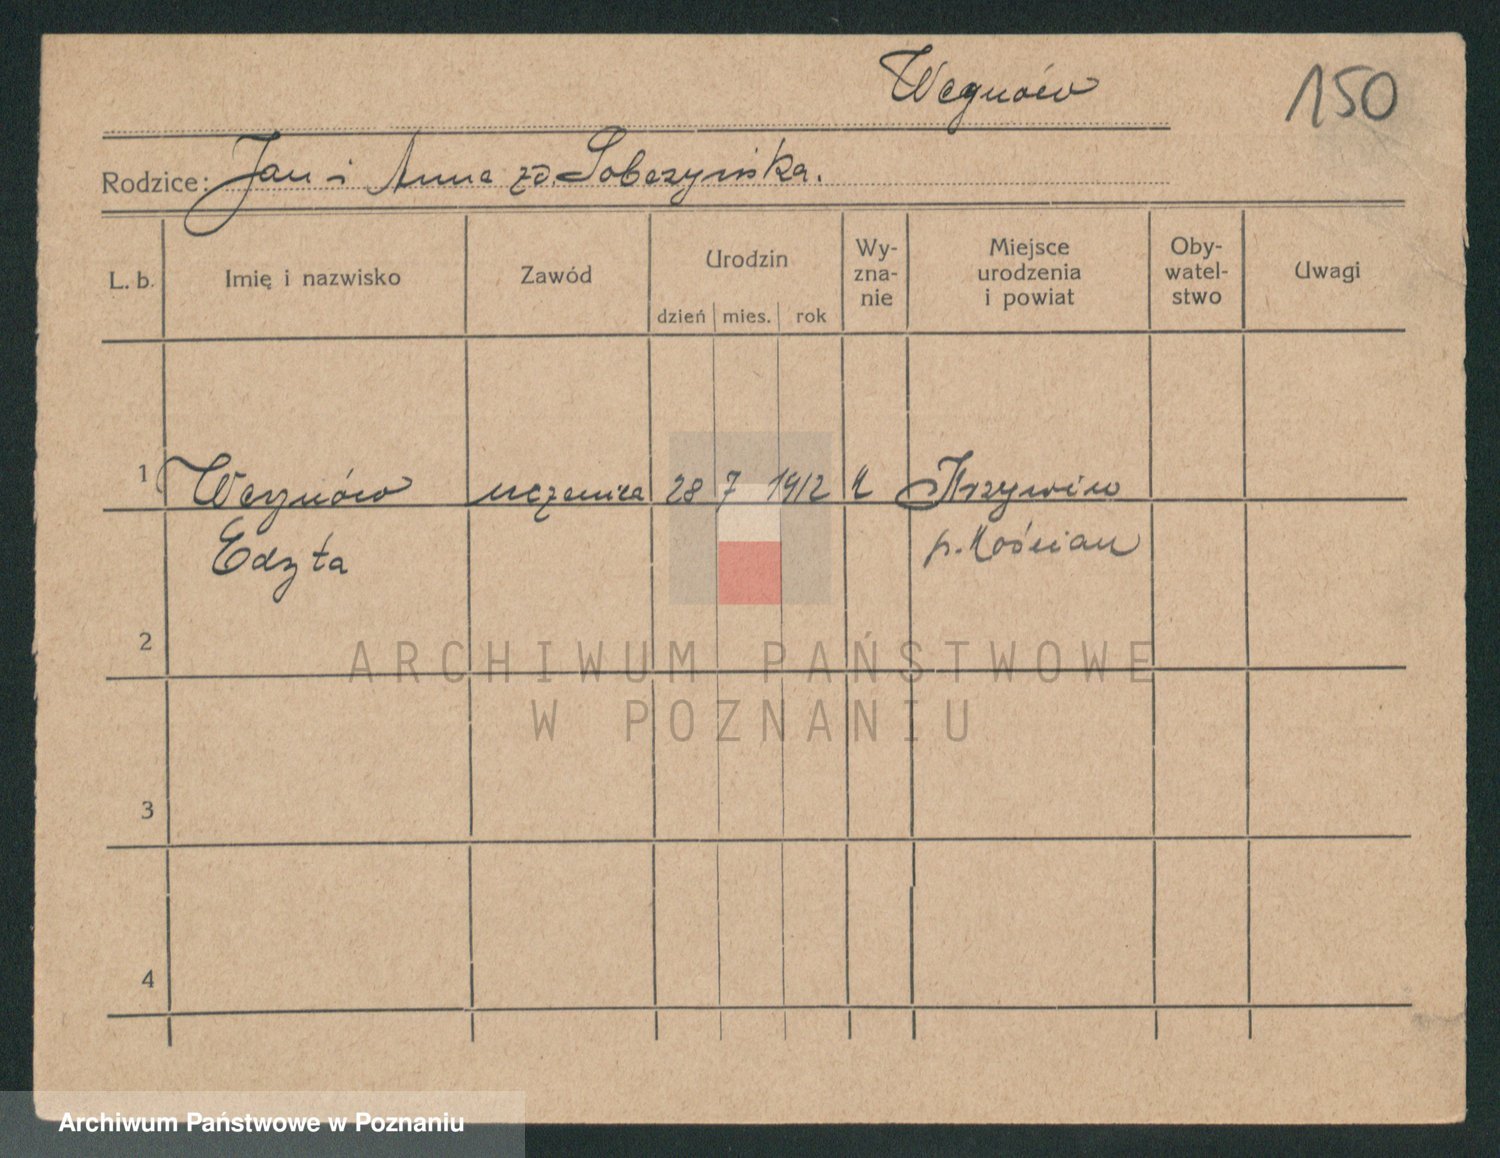 Wegnów
150
Rodzice: Jan i Anna zd. Sobczyńska.
L. b. Imię i nazwisko Zawód Urodzin dzień mies. rok Wy-zna-nie Miejsce urodzenia i powiat Oby-watel-stwo Uwagi
1 Wegnów uczenica 28 7 1912 k Krzywiw
Edyta p. Kościan
2
ARCHIWUM PAŃSTWOWE
W POZNANIU
3
4
Archiwum Państwowe w Poznaniu